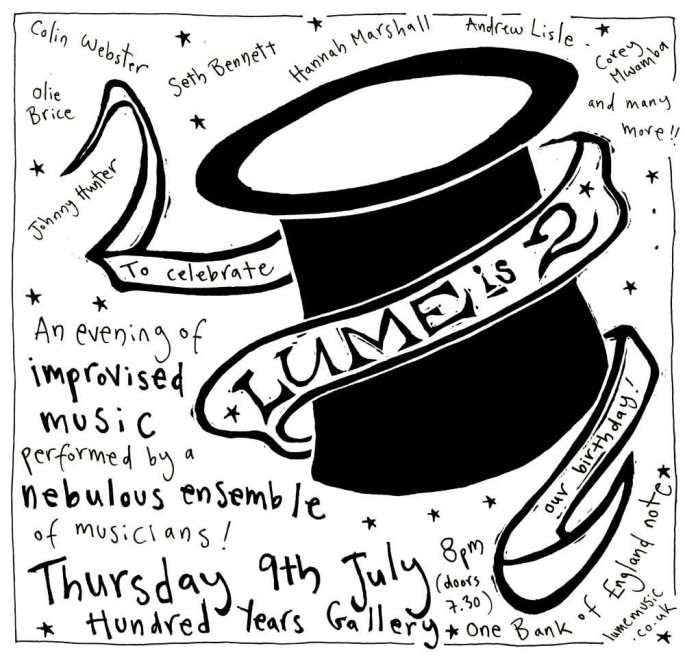 Colin Webster
Seth Bennett
Hannah Marshall
Andrew Lisle
Corey
Mwamba
and many
more!!
Olie
Brice
Johnny Hunter
To celebrate
LUME is 2
our birthday!
An evening of
improvised
music
performed by a
nebulous ensemble
of musicians!
Thursday 9th July
Hundred Years Gallery
8pm
(doors
7.30)
One Bank of England note
lumemusic
.co.uk